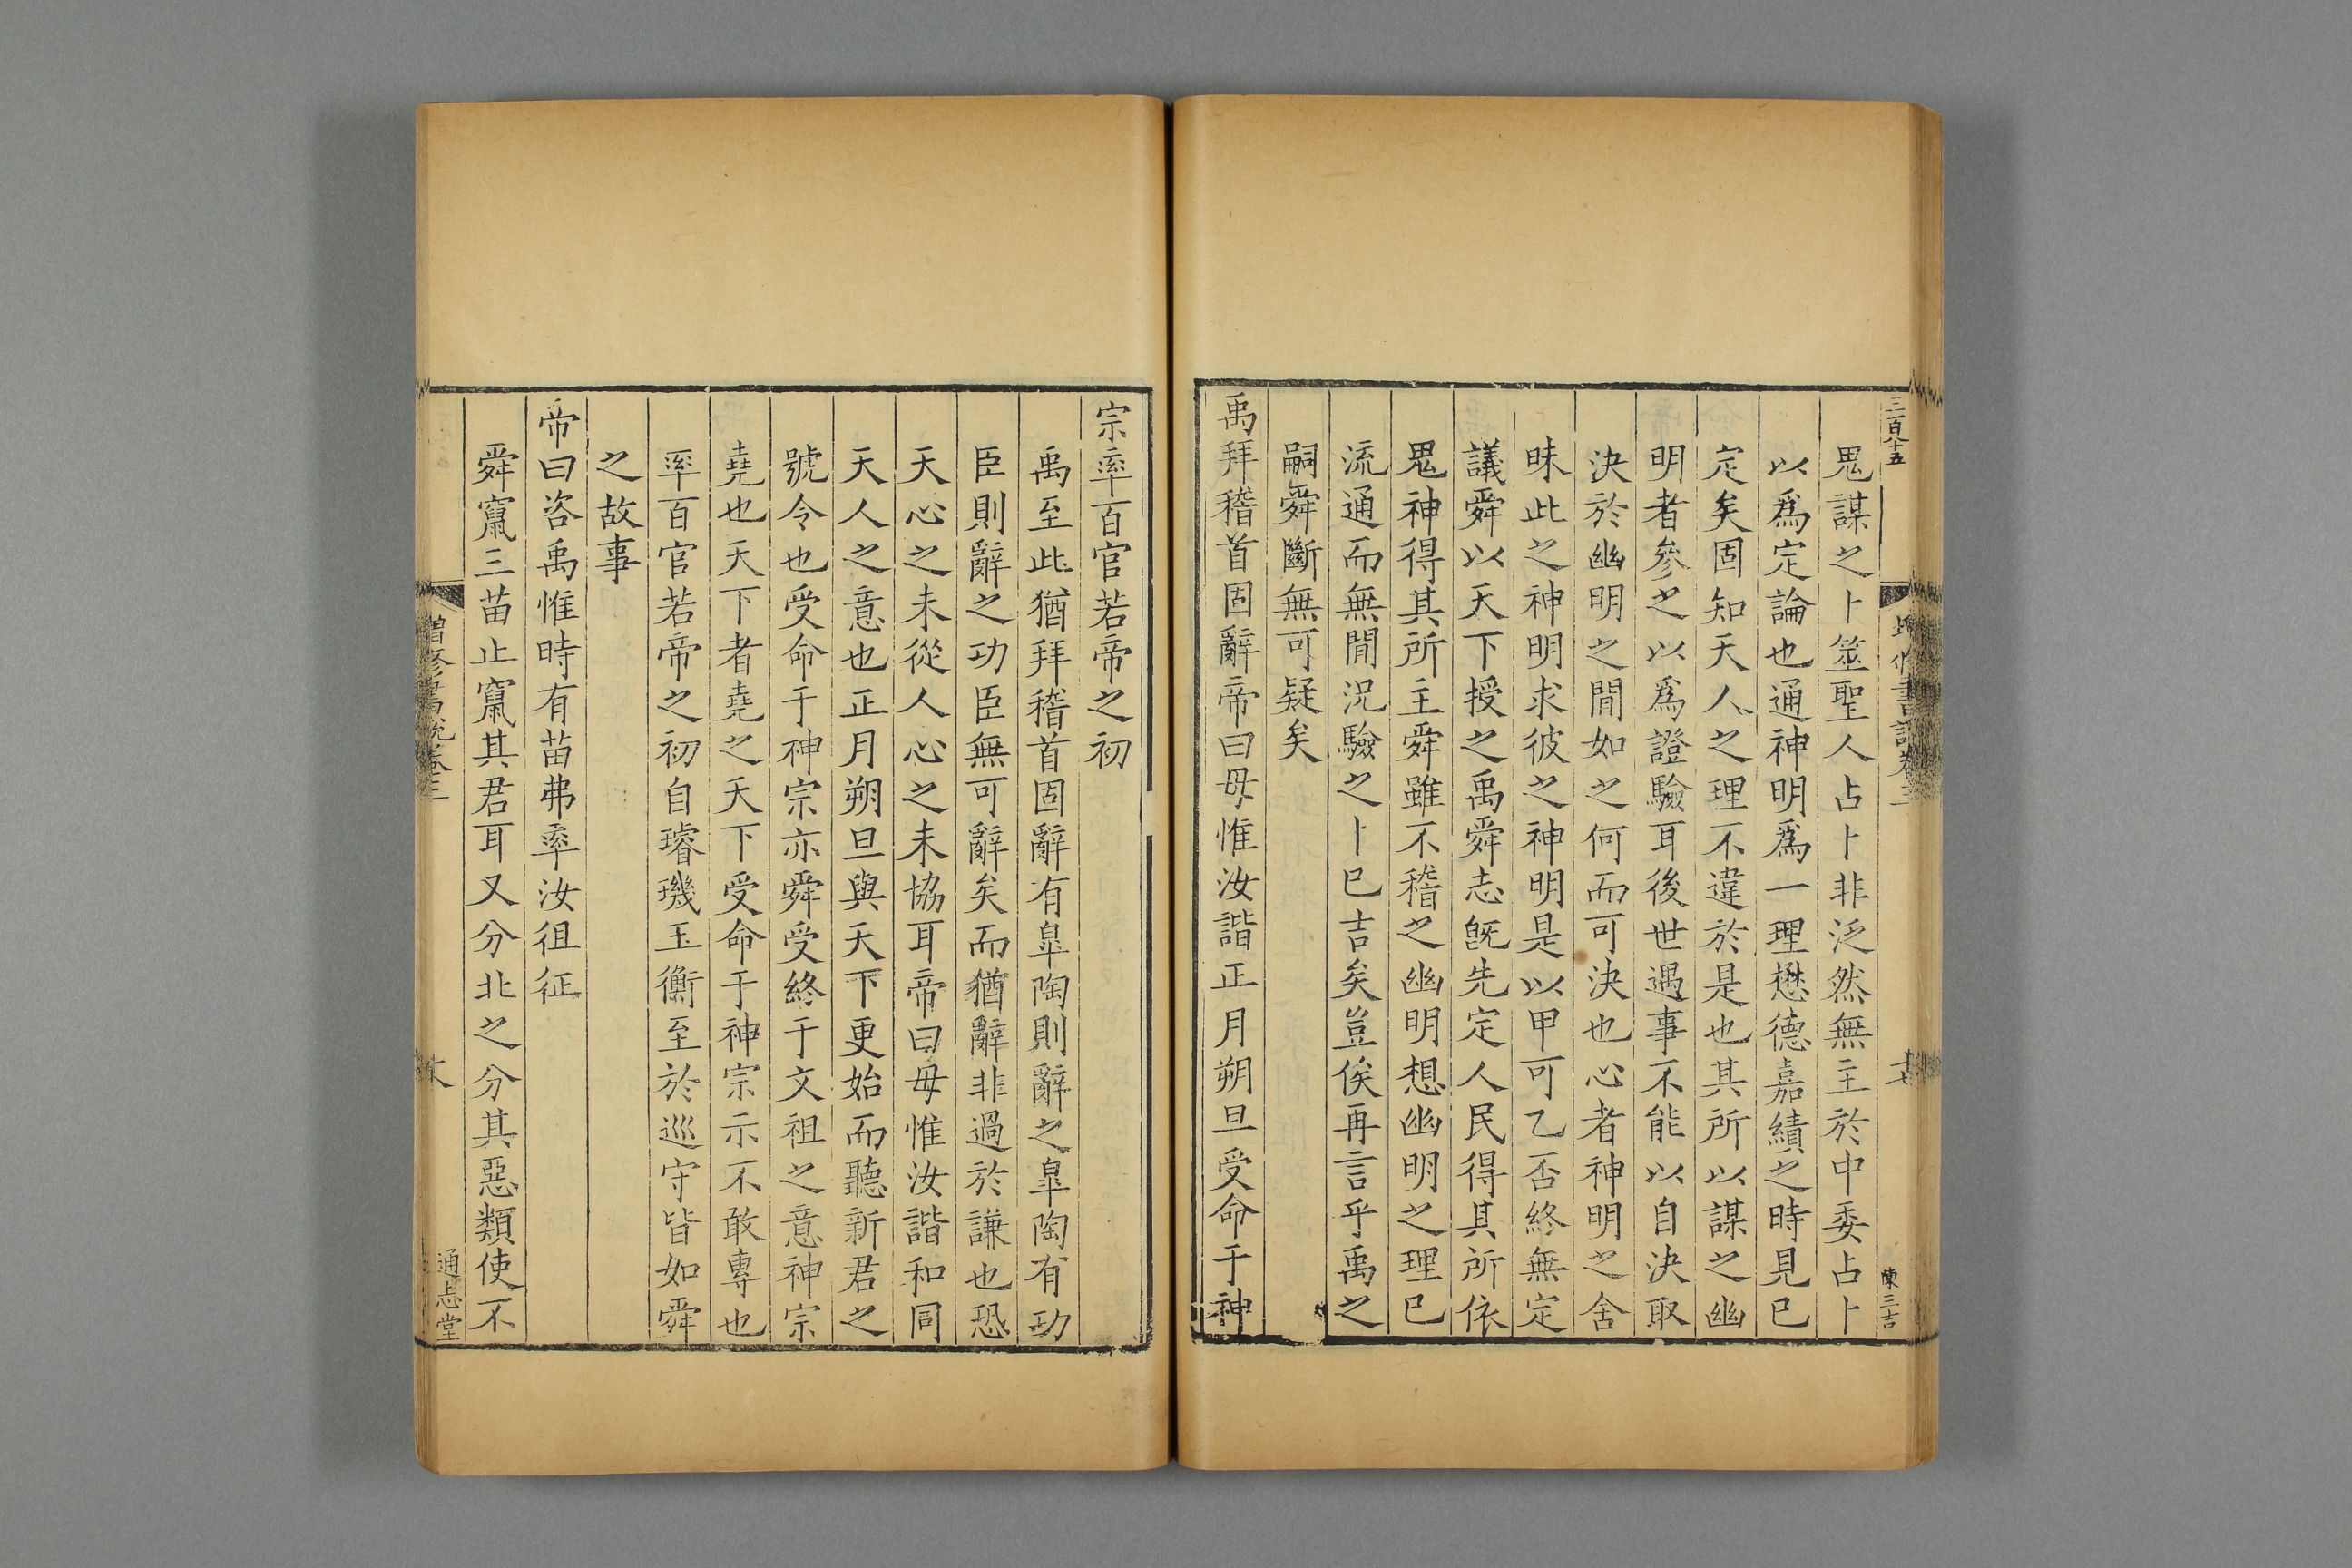 三百八十五
陳三吉
鬼謀之卜筮聖人占卜非泛然無主於中委占卜
以爲定論也通神明爲一理懋德嘉績之時見已
定矣固知天人之理不違於是也其所以謀之幽
明者參之以爲證驗耳後世遇事不能以自決取
決於幽明之間如之何而可決也心者神明之舍
昧此之神明求彼之神明是以甲可乙否終無定
議舜以天下授之禹舜志旣先定人民得其所依
鬼神得其所主舜雖不稽之幽明想幽明之理已
流通而無間況驗之卜已吉矣豈俟再言乎禹之
嗣舜斷無可疑矣
禹拜稽首固辭帝曰毋惟汝諧正月朔旦受命于神
宗率百官若帝之初
禹至此猶拜稽首固辭有臯陶則辭之臯陶有功
臣則辭之功臣無可辭矣而猶辭非過於謙也恐
天心之未從人心之未協耳帝曰毋惟汝諧和同
天人之意也正月朔旦與天下更始而聽新君之
號令也受命于神宗亦舜受終于文祖之意神宗
堯也天下者堯之天下受命于神宗示不敢專也
率百官若帝之初自璿璣玉衡至於巡守皆如舜
之故事
帝曰咨禹惟時有苗弗率汝徂征
舜竄三苗止竄其君耳又分北之分其惡類使不
增修書說卷三
通志堂